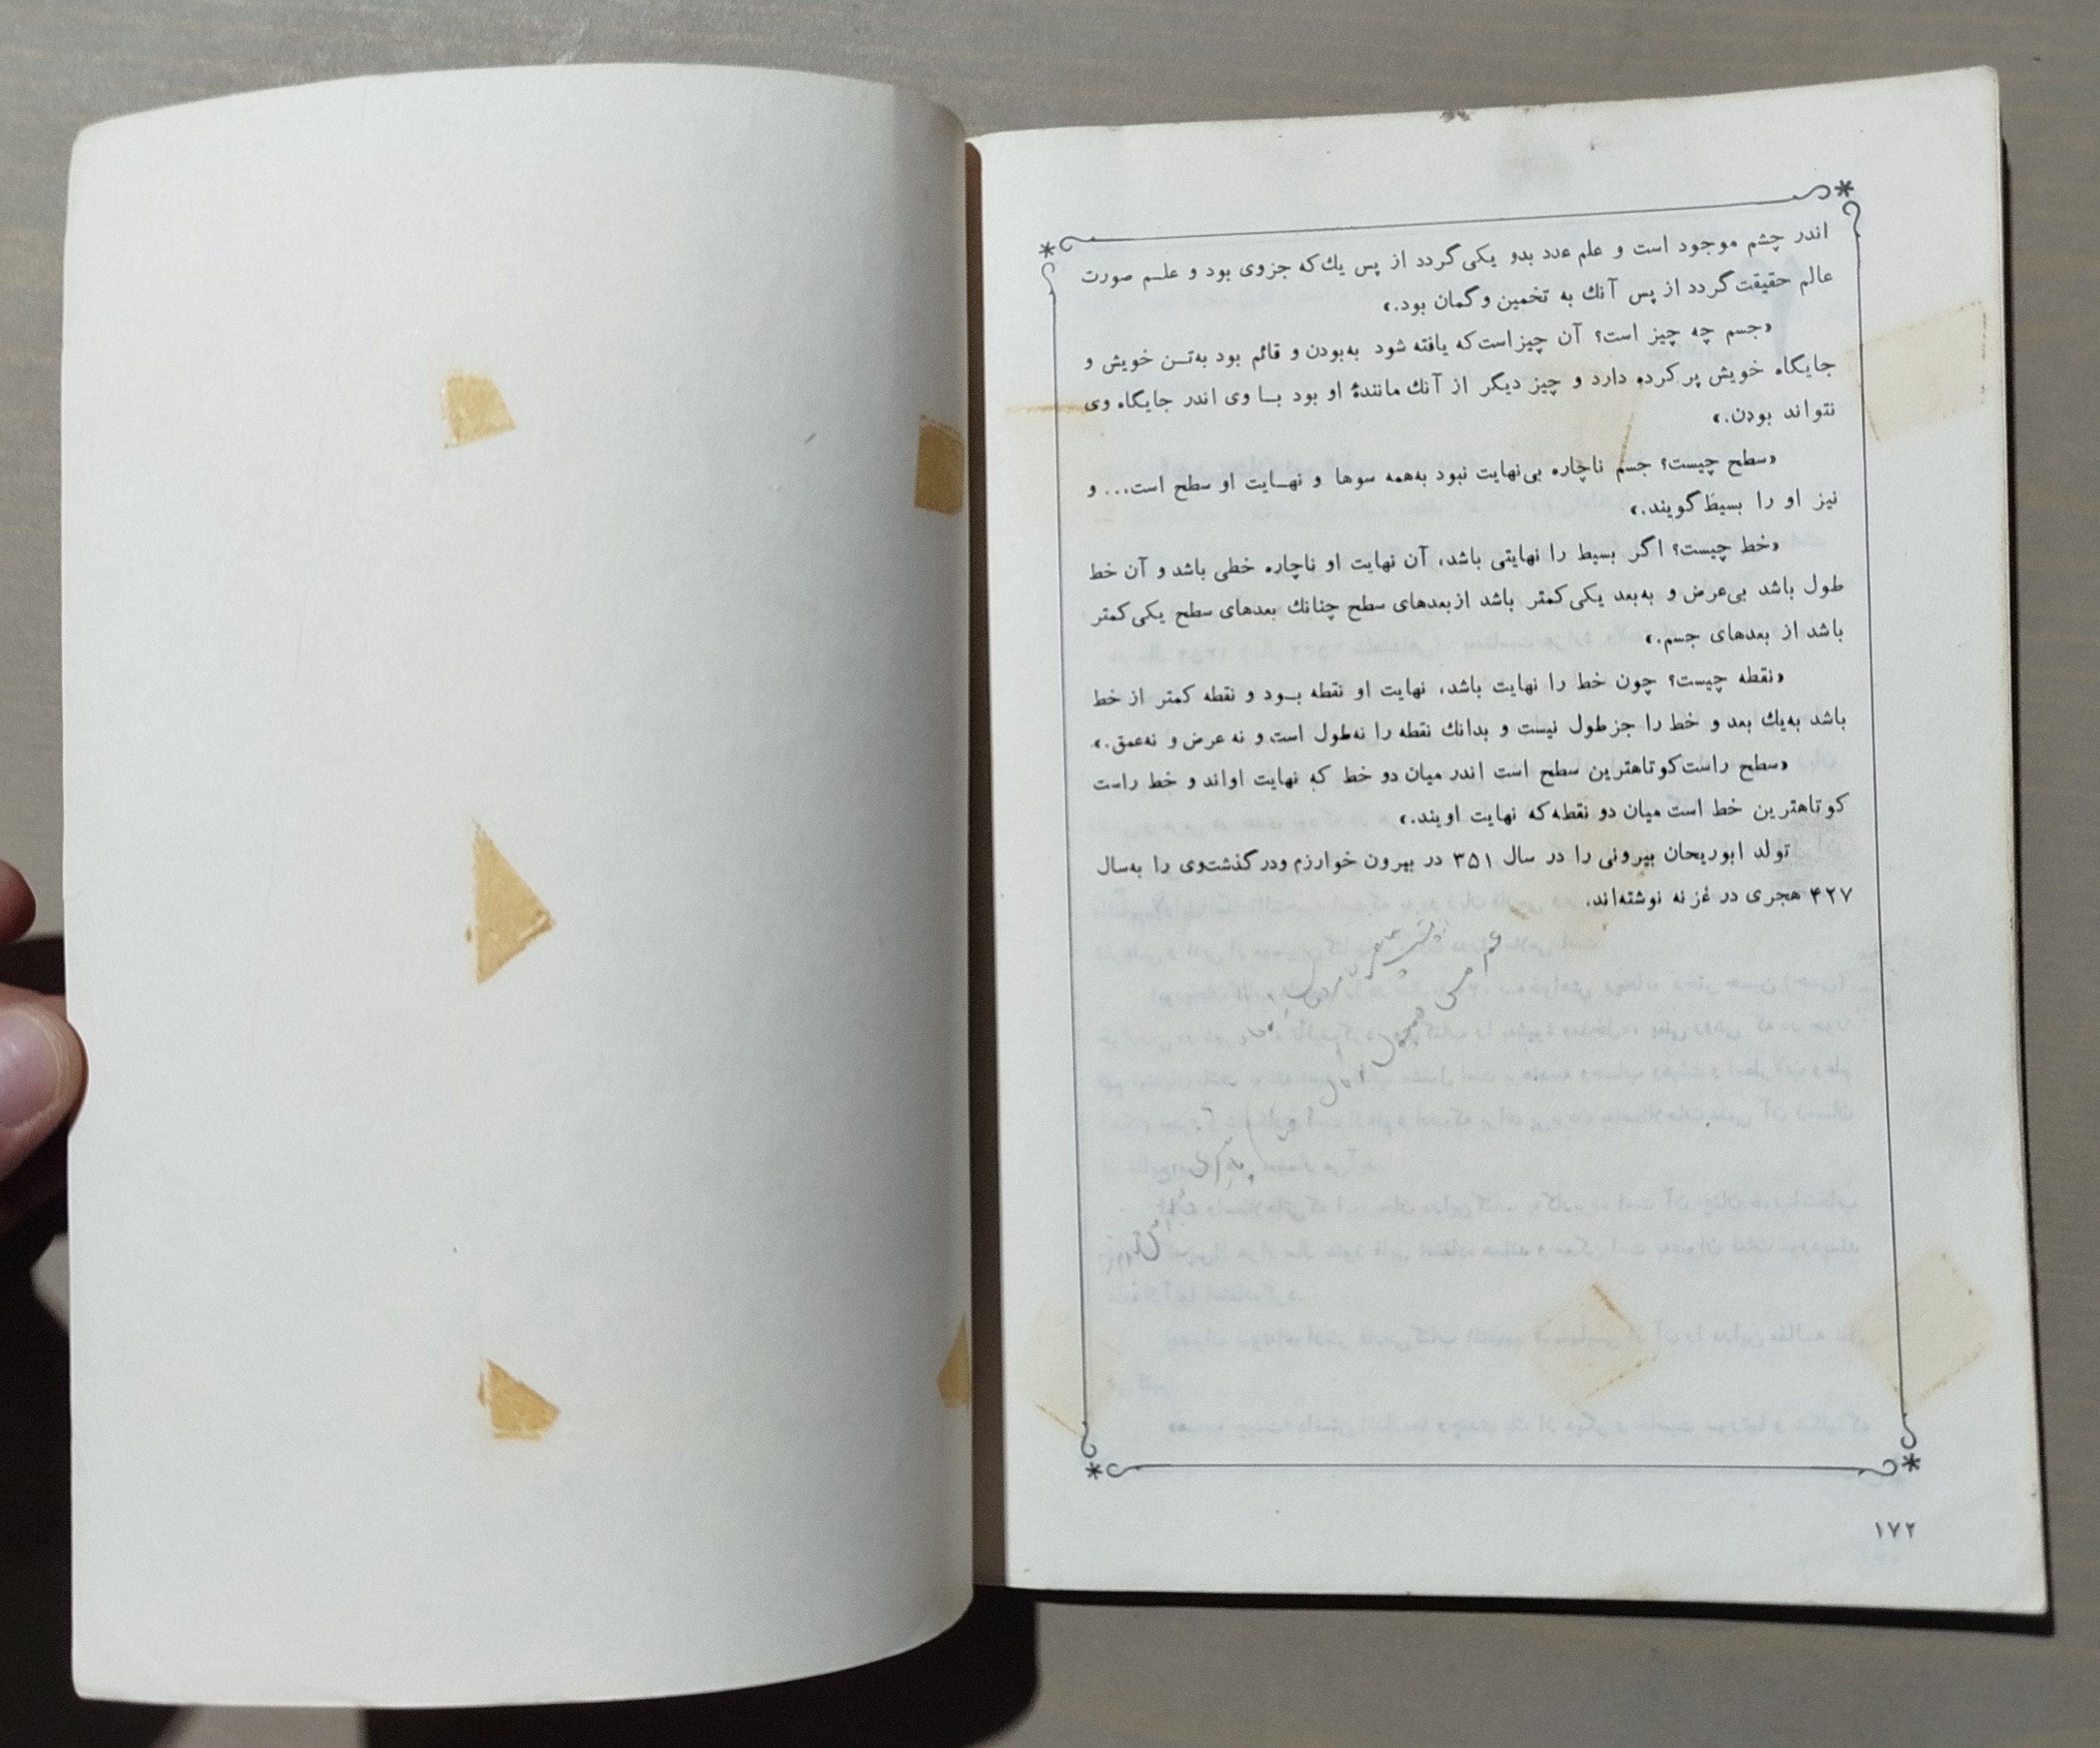 اندر چشم موجود است و علم عدد بدو یکی گردد از پس یك که جزوی بود و علـم صورت
عالم حقیقت گردد از پس آنك به تخمین و گمان بود.»
«جسم چه چیز است؟ آن چیز است که یافته شود به‌بودن و قائم بود به‌تـن خویش و
جایگاه خویش پر کرده دارد و چیز دیگر از آنك مانندهٔ او بود بـا وی اندر جایگاه وی
نتواند بودن.»
«سطح چیست؟ جسم ناچاره بی‌نهایت نبود به‌همه سوها و نهـایت او سطح است... و
نیز او را بسیط گویند.»
«خط چیست؟ اگر بسیط را نهایتی باشد، آن نهایت او ناچاره خطی باشد و آن خط
طول باشد بی‌عرض و به‌بعد یکی کمتر باشد از بعدهای سطح چنانك بعدهای سطح یکی کمتر
باشد از بعدهای جسم.»
«نقطه چیست؟ چون خط را نهایت باشد، نهایت او نقطه بـود و نقطه کمتر از خط
باشد به‌یك بعد و خط را جز طول نیست و بدانك نقطه را نه‌طول است و نه عرض و نه‌عمق.»
«سطح راست کوتاهترین سطح است اندر میان دو خط که نهایت اواند و خط راست
کوتاهترین خط است میان دو نقطه که نهایت اویند.»
تولد ابوریحان بیرونی را در سال ۳۵۱ در بیرون خوارزم و درگذشت‌وی را به‌سال
۴۲۷ هجری در غزنه نوشته‌اند.
۱۷۲